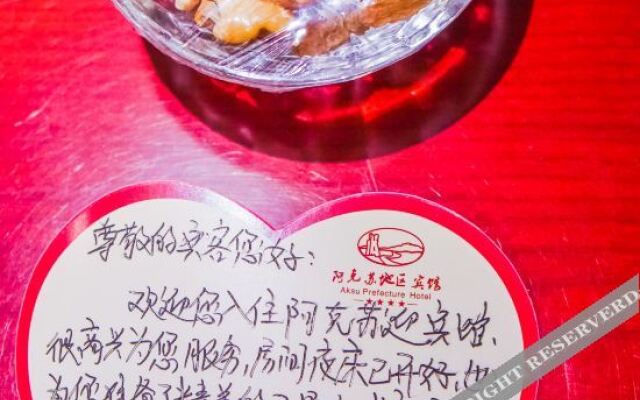 尊敬的宾客您好：
阿克苏地区宾馆
Aksu Prefecture Hotel
★★★★
欢迎您入住阿克苏迎宾馆，
很高兴为您服务，房间夜床已开好，
为您
RIGHT RESERVED